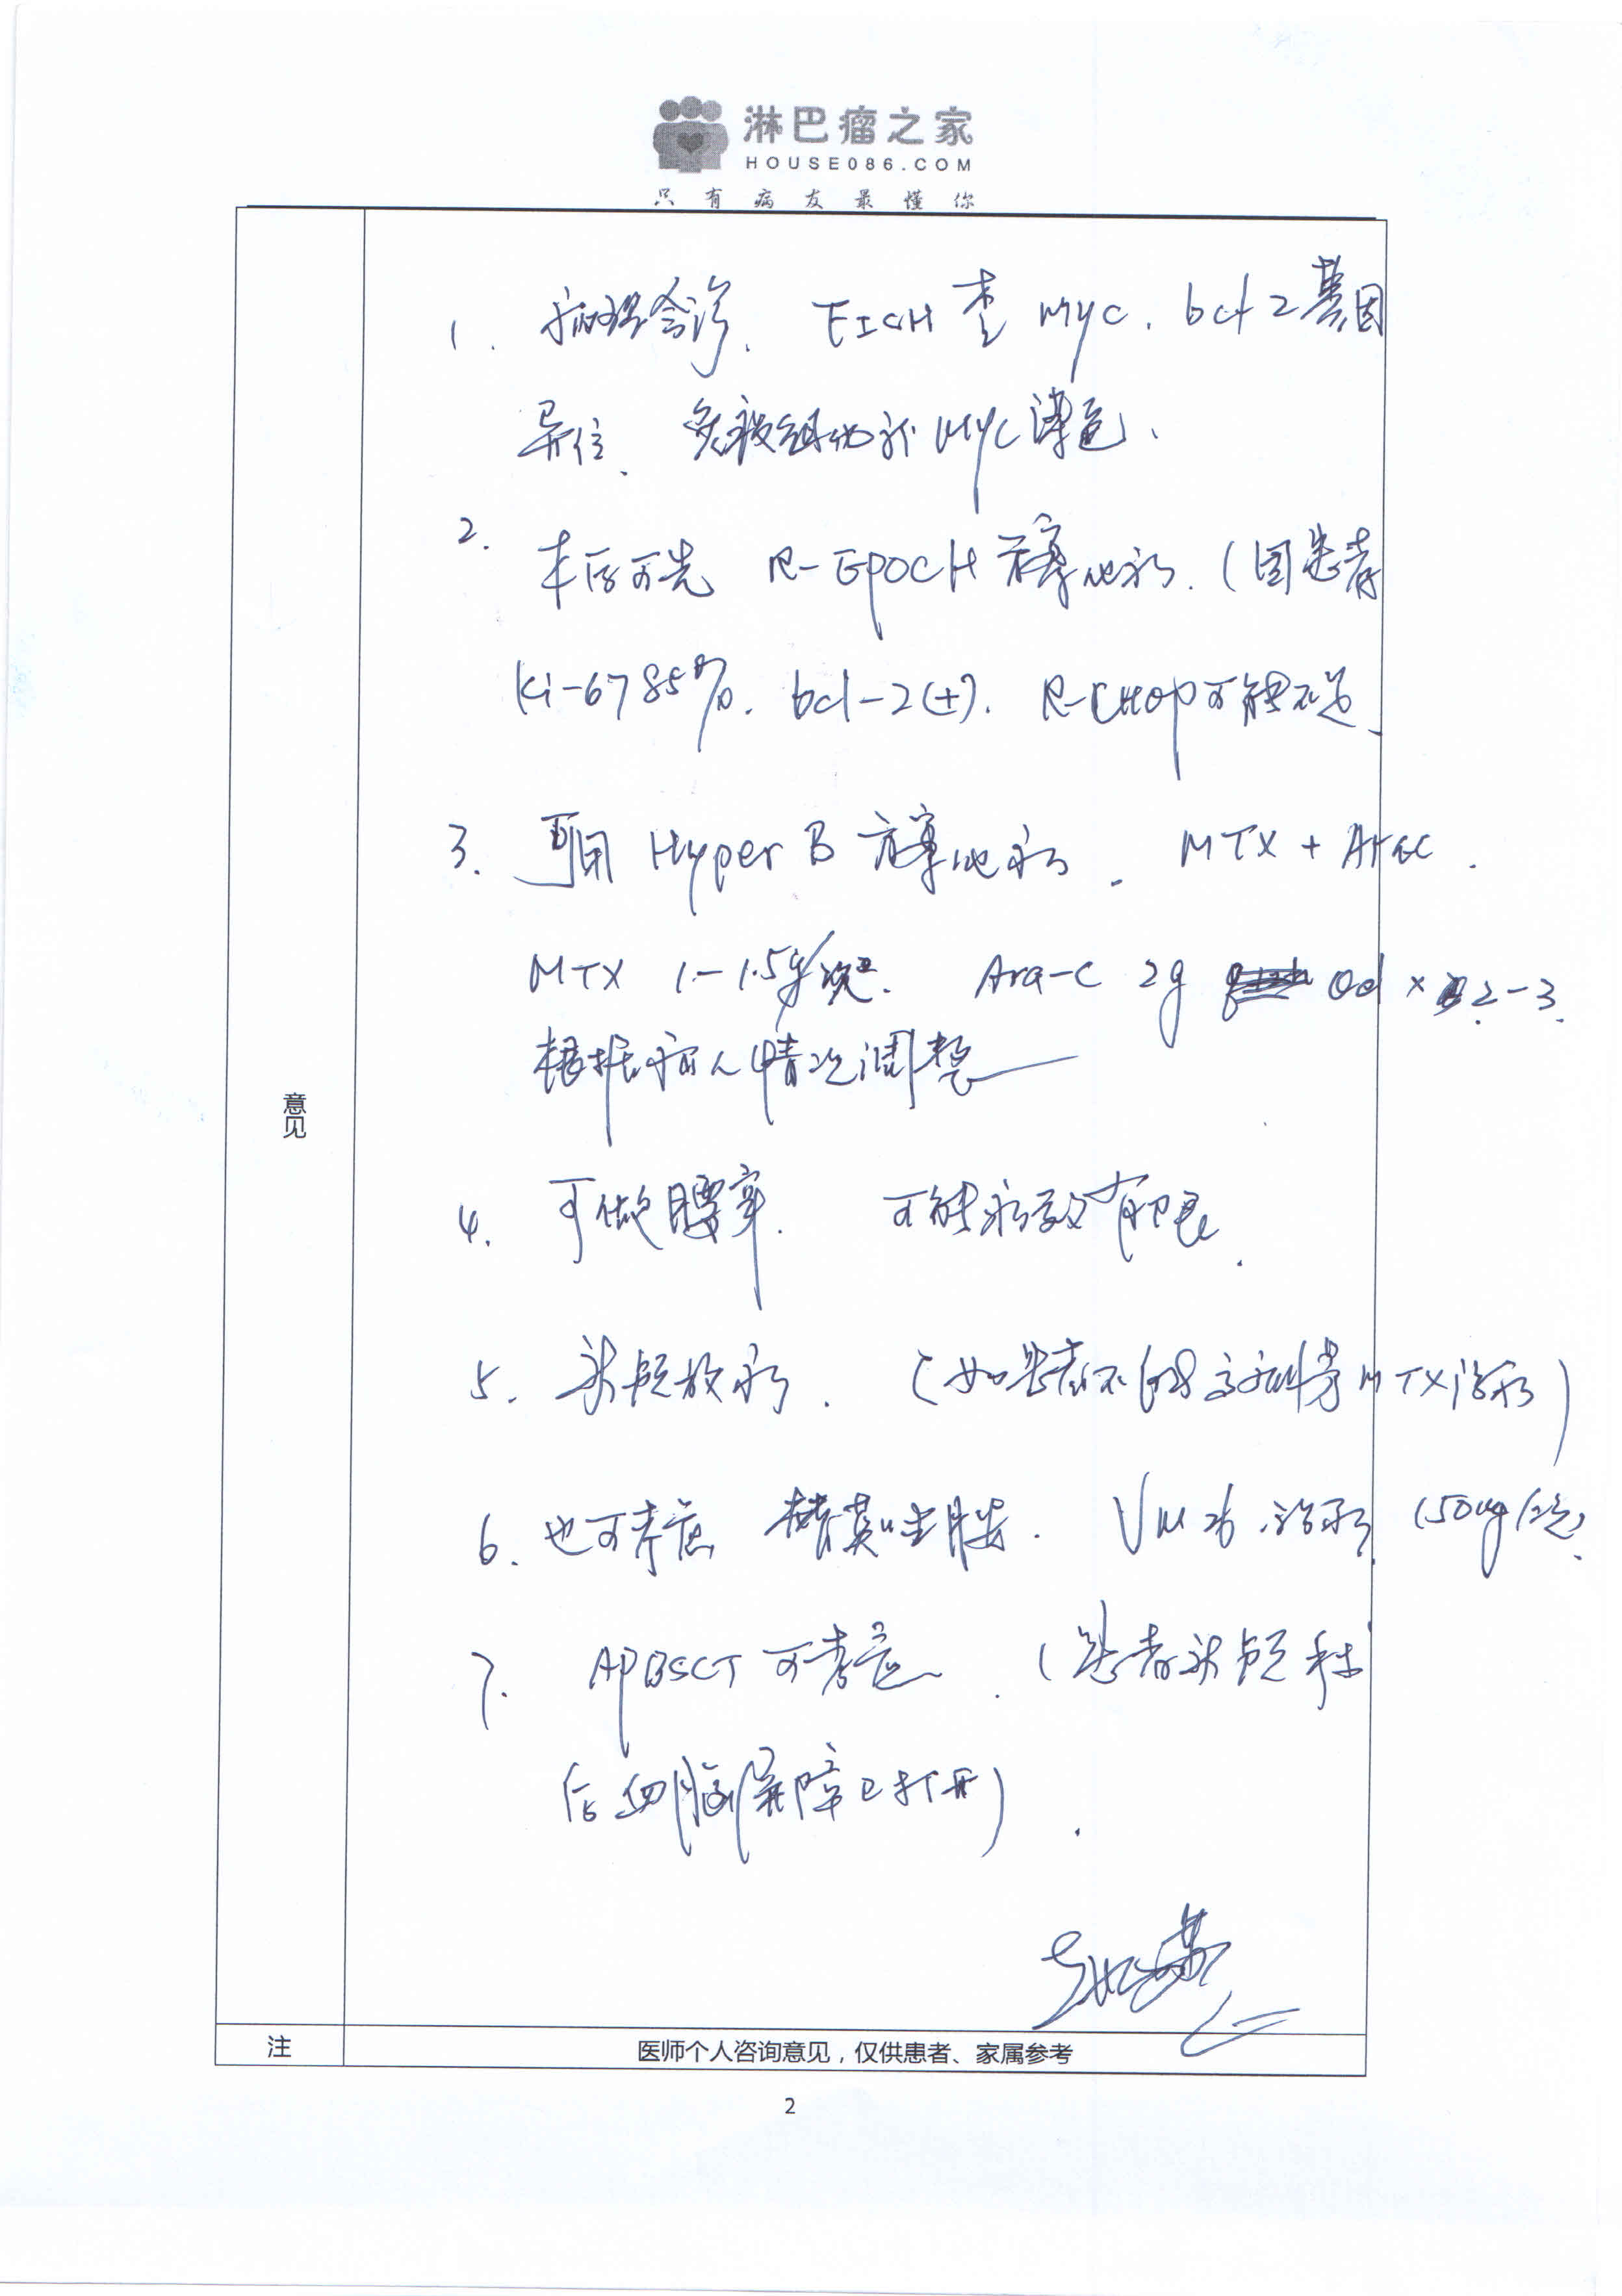 淋巴瘤之家
HOUSE086.COM
只有病友最懂你
1. 病理会诊、FISH 查 MYC、bcl 2 基因
异位、免疫组化 MYC 染色、
2. 可先 R-EPOCH 方案化疗.(因患者
Ki-67 85%. bcl-2(+). R-CHOP 可能不足、
3. 可用 Hyper B 方案化疗. MTX + Ara-C.
MTX 1-1.5g/次. Ara-C 2g Qd × 2-3.
根据病人情况调整
意见
4. 可做腰穿. 可能疗效有限.
5. 头颅放疗. (如患者不 MTX 治疗)
6. 也可考虑 替莫唑胺. VM26 治疗
7. APBSCT 可考虑. (患者头颅
后血脑屏障已打开).
注
医师个人咨询意见，仅供患者、家属参考
2